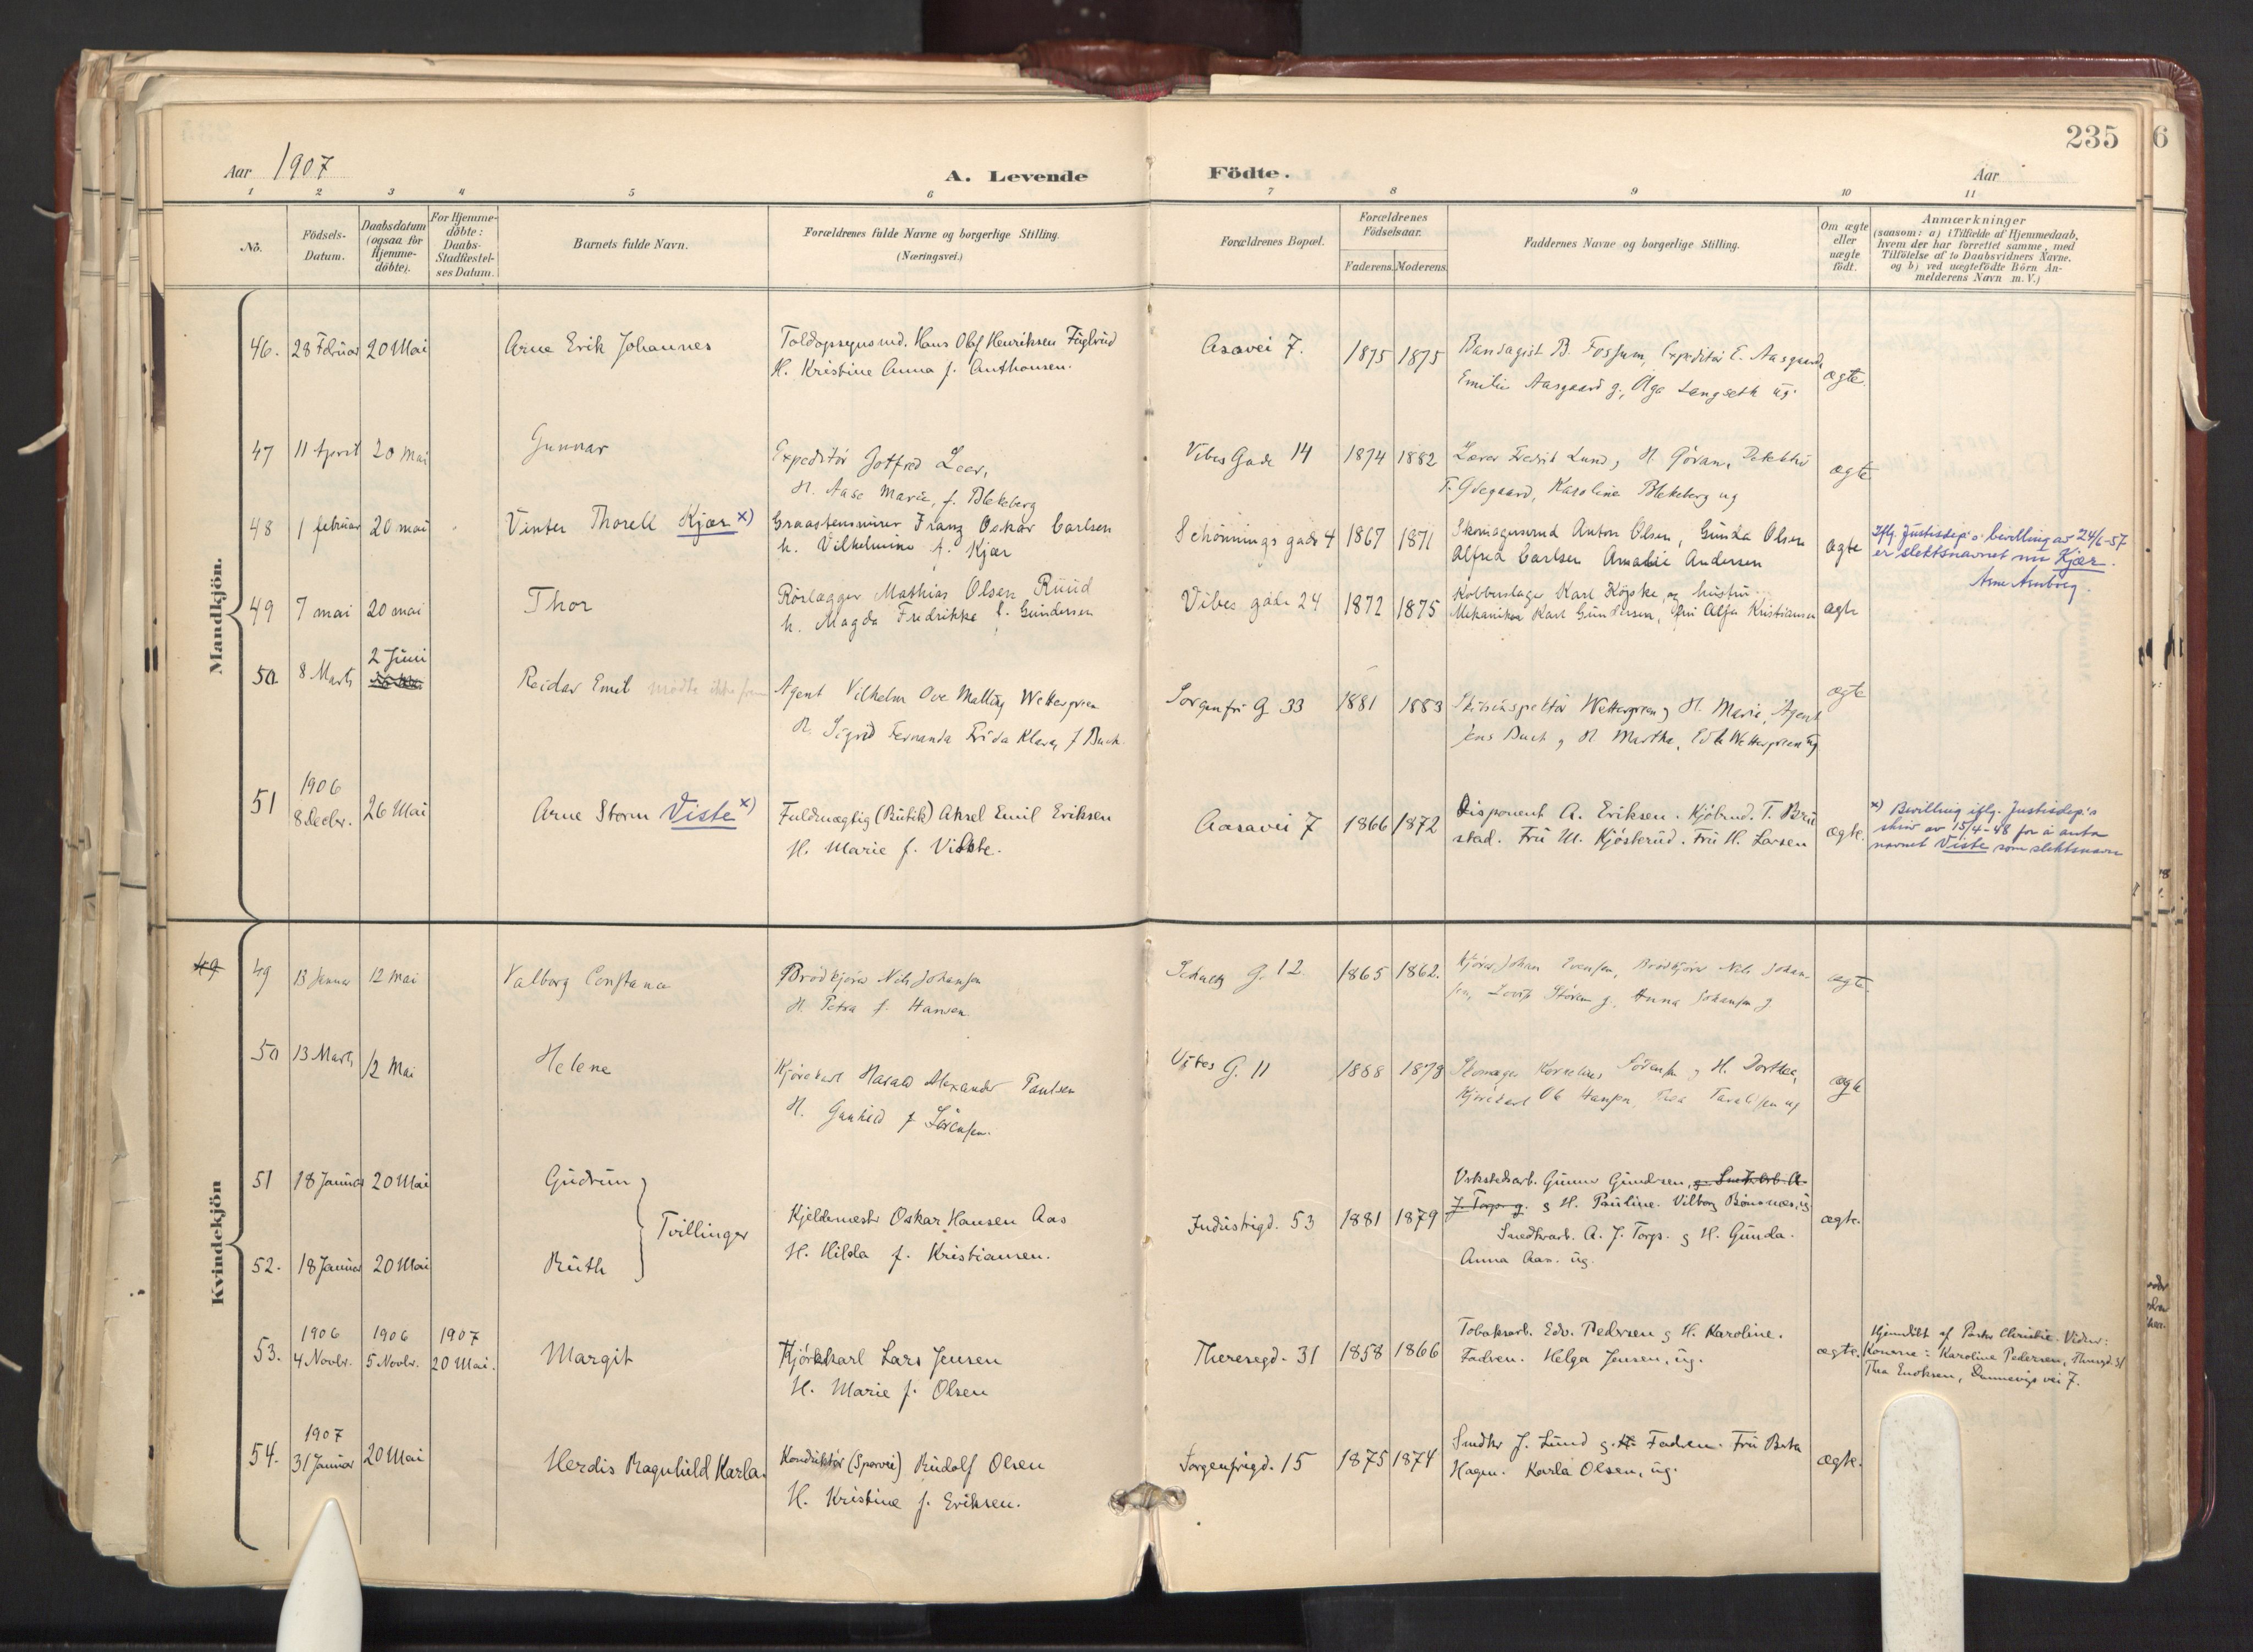 235
6
Aar 1907
A. Levende
Födte.
Aar
1 2 3 4 5 6 7 8 9 10 11
No.
Födsels-
Datum.
Daabsdatum
(ogsaa for
Hjemme-
döbte).
For Hjemme-
döbte:
Daabs-
Stadfæstel-
ses Datum.
Barnets fulde Navn.
Forældrenes fulde Navne og borgerlige Stilling.
(Næringsvei.)
Forældrenes Bopæl.
Forældrenes
Födselsaar.
Faderens.
Moderens.
Faddernes Navne og borgerlige Stilling.
Om ægte
eller
uægte
födt.
Anmærkninger
(saasom: a) i Tilfælde af Hjemmedaab,
hvem der har forrettet samme, med
Tilföielse af to Daabsvidners Navne.
og b) ved uægtefödte Börn An-
melderens Navn m. V.)
Mandkjön.
46. 28 Februar 20 Mai Arne Erik Johannes
Toldopsynsmd. Hans Olaf Henriksen Fuglrud
H. Kristine Anna f. Anthonsen.
Aasavei 7. 1875 1875
Bandagist B. Fossum, Expeditör E. Aasgaard,
Emilie Aasgaard g., Olga Langseth ug.
ægte.
47 11 April 20 mai Gunnar
Expeditör Gotfred Leer,
H. Aase Marie, f. Blekeberg
Vibes Gade 14 1874 1882
Lærer Fredrik Lund, H. Göran,
Ödegaard, Karoline Blekeberg ug
ægte
48 1 februar 20 mai Vinter Thorell Kjær x)
Graastensmurer Franz Oskar Carlsen
h. Vilhelmine f. Kjær
Schönnings gade 4 1867 1871
Skomagersvend Anton Olsen, Gunda Olsen
Alfred Carlsen Amalie Andersen
ægte
Iflg. Justisdep's bevilling av 24/6-57
er slektsnavnet nu Kjær.
49 7 mai 20 mai Thor
Rörlægger Mathias Olsen Ruud
h. Magda Fredrikke f. Gundersen
Vibes gade 24 1872 1875
Kobberslager Karl Köpke, og hustru
Mekaniker Karl Gundersen, fru Alfa Kristiansen
ægte
50. 8 Marts 2 Juni Reidar Emil mödte ikke frem
Agent Vilhelm Ove Malling Wettergreen
H. Sigrid Fernanda Frida Klara, f Buch.
Sorgenfri G 33 1881 1883
Skibsinspektör Wettergreen, H. Marie, Agent
Jens Buch, H Martha, Edle Wettergreen ug
ægte
51 1906
8 Decbr. 26 Mai Arne Storm Viste x)
Fuldmægtig (Butik) Aksel Emil Eriksen
H. Marie f. Viste.
Aasavei 7 1866 1872
Disponent A. Eriksen. Kjöbmd. T. Bru
stad. Fru M. Kjöskerud. Fru H. Larsen
ægte.
x) Bevilling iflg. Justisdep's
skriv av 15/4-48 for å anta
navnet Viste som slektsnavn
Kvindekjön
49 49 13 Januar 12 mai Valborg Constance
Brödkjörer Nils Johansen
H. Petra f. Hansen.
Schultz G. 12. 1865 1862.
Kjörer Johan Evensen, Brödkjörer Nils Johan-
sen, Lovise Stören g., Anna Johansen g
ægte.
50 13 Marts 12 Mai Helene
Kjörekarl Harald Alexander Paulsen
H. Gunhild f Sörensen.
Vibes G. 11 1868 1873
Skomager Kornelius Sörensen, H. Dorthea,
Kjörekarl Ole Hansen, Thea Taraldsen ug
ægte
51 18 Januar 20 Mai Gudrun
Tvillinger
52. 18 Januar 20 Mai Ruth
Kjeldermestr Oskar Hansen Aas
H. Hilda f. Kristiansen.
Industrigd. 53 1881 1879
Verkstedsarb. Gunnar Gundersen, g. Smedarb. A.
J. Torp. g. g H. Pauline. Vilborg Bönsnæs, ug
Smedarb. A. J. Torp. g H. Gunda.
Anna Aas. ug.
ægte.
53. 1906
4 Novbr. 1906
5 Novbr. 1907
20 Mai. Margit
Kjörekarl Lars Jensen
H. Marie f. Olsen
Theresegd. 31 1858 1866
Tobaksarb. Edv. Pedersen g H. Karoline.
Fadren. Helga Jensen, ug.
ægte.
Hjemdöbt af Pastor Christie. Vidner:
Konerne: Karoline Pedersen, Theresgd. 31
Thea Enoksen, Dunnevigs vei 7.
54. 1907
31 Januar 20 Mai Herdis Ragnhild Karla.
Konduktör (Sporvei) Rudolf Olsen
H. Kristine f. Eriksen.
Sorgenfrigd. 15 1875 1874
Smedkr J. Lund g. H. Fadren. Fru Berta
Hagen. Karla Olsen, ug.
ægte.